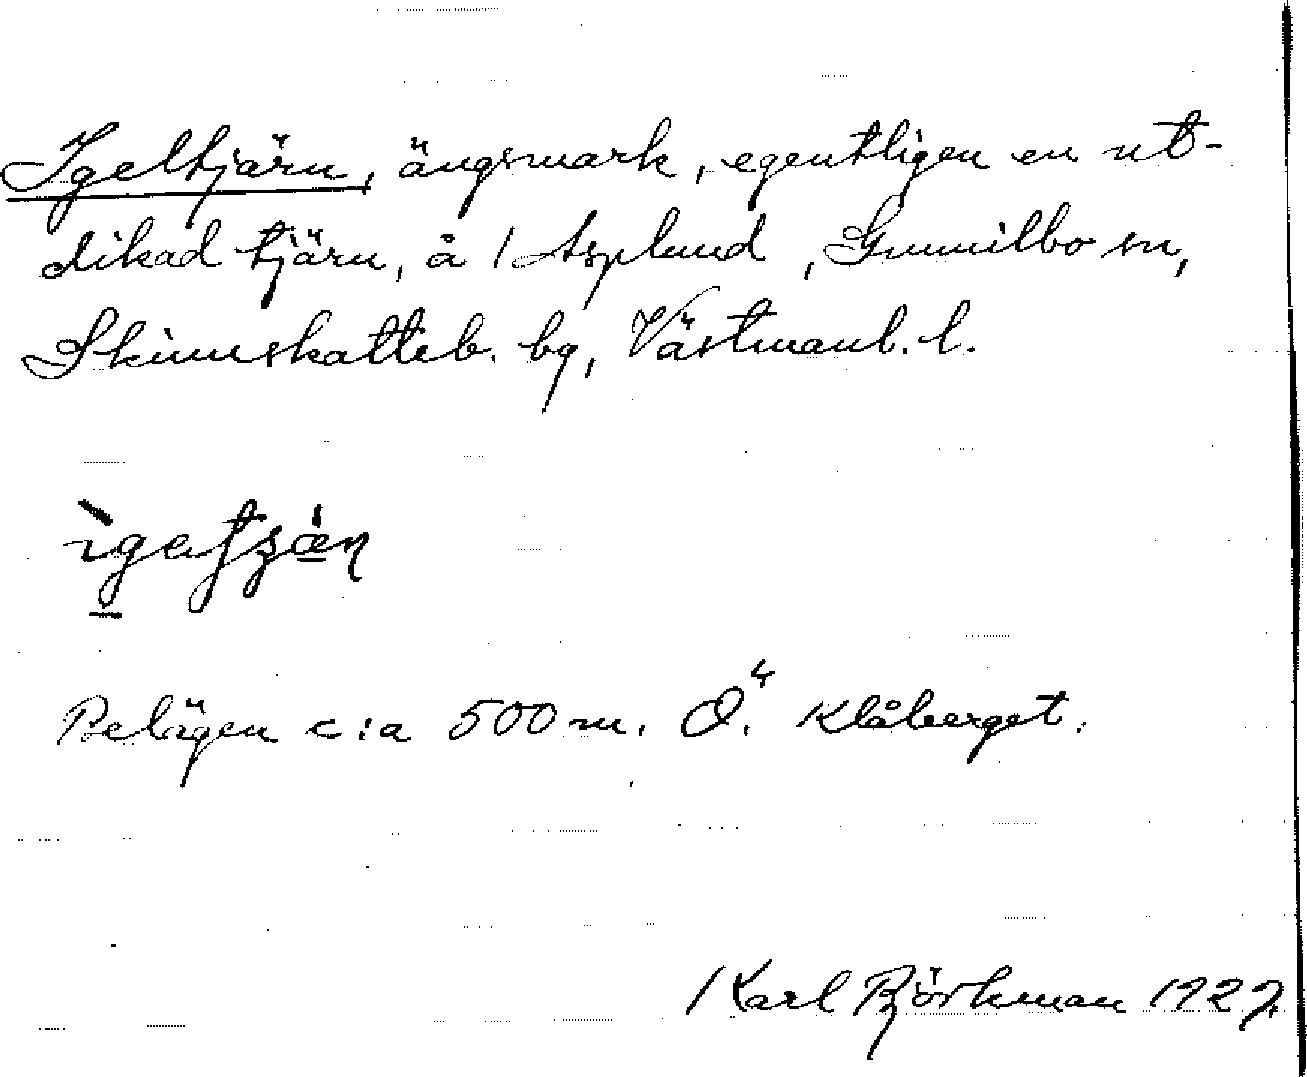 Igeltjärn, ängsmark, egentligen en ut-
dikad tjärn, å 1 Asplund, Gunnilbo sn,
Skinnskatteb. bg, Västmanl. l.
Belägen c:a 500 m. Ö. Klåberget.
Karl Björkman 1927.